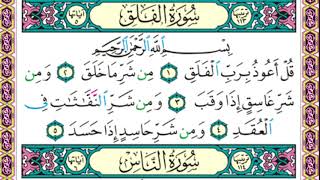 سُورَةُ الْفَلَقِ
بِسْمِ اللَّهِ الرَّحْمَٰنِ الرَّحِيمِ
قُلْ أَعُوذُ بِرَبِّ الْفَلَقِ ١ مِن شَرِّ مَا خَلَقَ ٢ وَمِن
شَرِّ غَاسِقٍ إِذَا وَقَبَ ٣ وَمِن شَرِّ النَّفَّٰثَٰتِ فِي
الْعُقَدِ ٤ وَمِن شَرِّ حَاسِدٍ إِذَا حَسَدَ ٥
سُورَةُ النَّاسِ